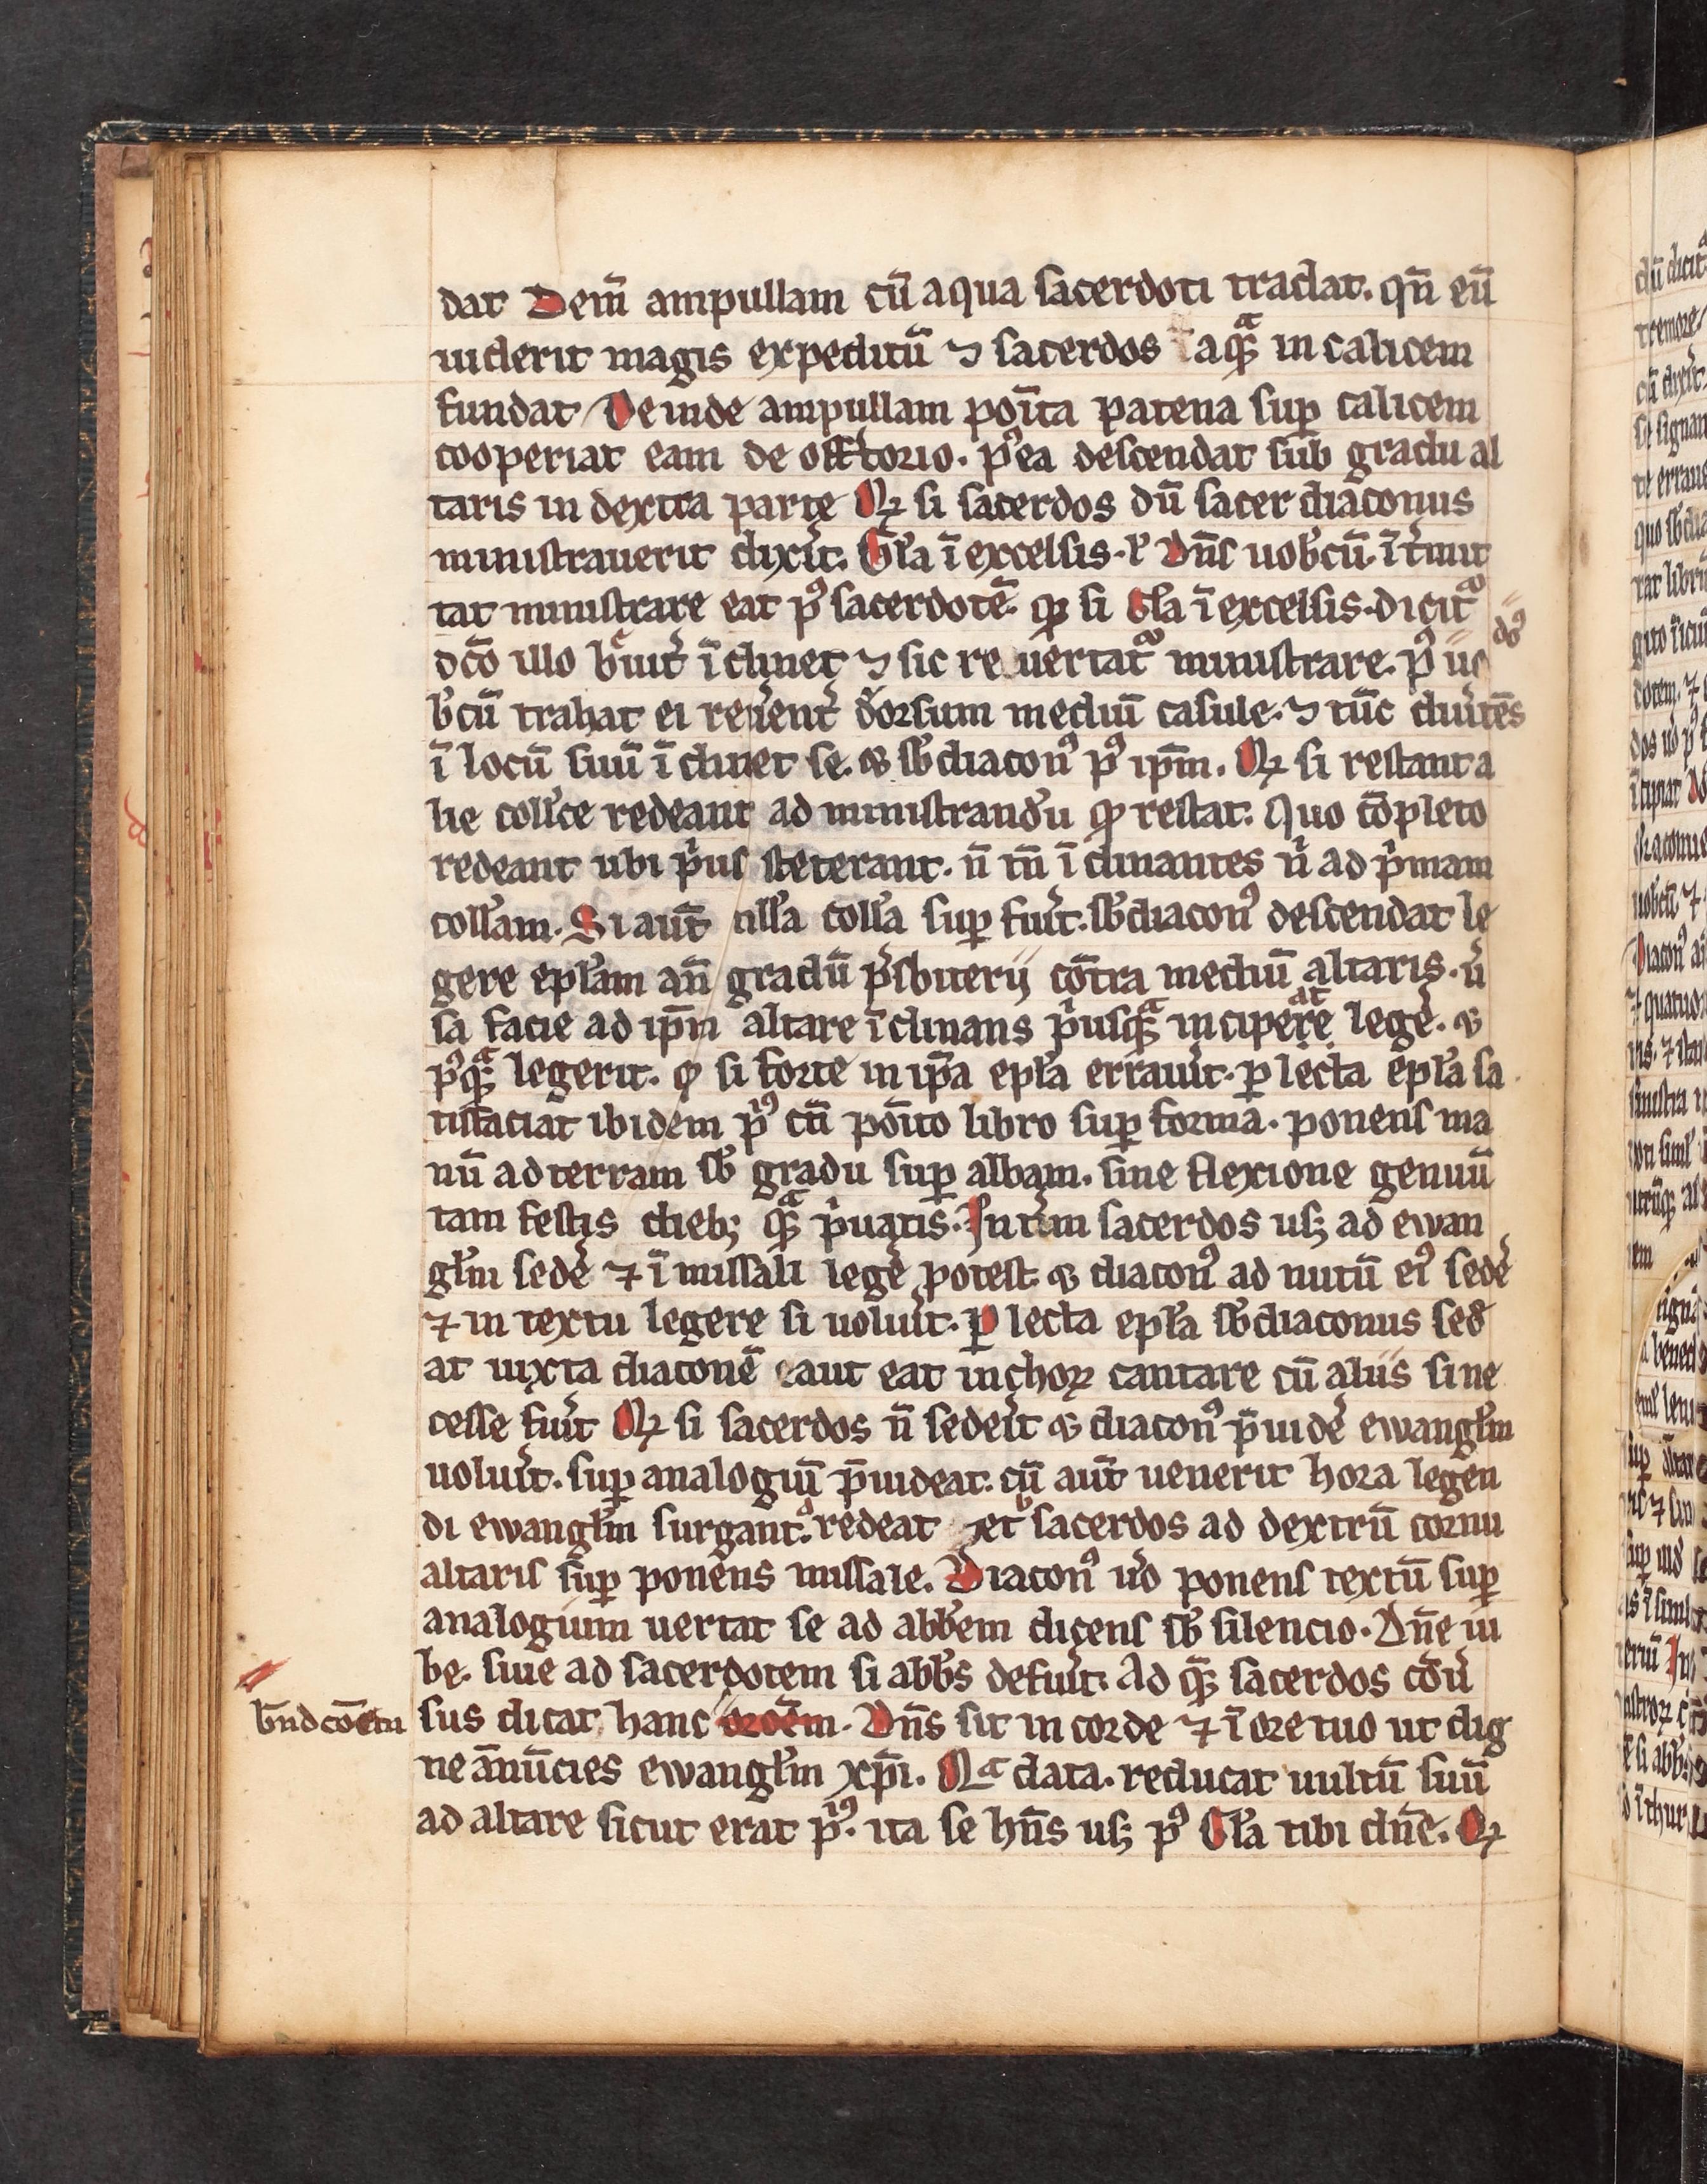 dat Dem̄ ampullam cū aqua sacerdoti tradat. qn̄ eū
uiderit magis expeditū ⁊ sacerdos aqᵃ in calicem
fundat Deinde ampullam poīta patena suꝑ calicem
cooperiat eam de offtorio. pꝰea descendat sub gradu al
taris in dextra parte Qꝫ si sacerdos dū sacer diaconus
ministrauerit dixit̾. Gl̄a ī excelsis. Dn̄s uobcū. īt̾mit
tat ministrare eat pꝰ sacerdotē. qꝫ si Gl̄a ī excelsis. dicit᷑
dcō illo breuit̾ īclinet ⁊ sic reuertat᷑ ministrare. pꝰ uo
bcū trahat ei reuent̾ dorsum mediū casule. ⁊ tūc diu̾tēs
ī locū suū īclinet se. ⁊ sb̄diaconꝰ pꝰ ip̄m. Qꝫ si restant a
lie coll̄ce redeant ad ministrandū qꝫ restat. Quo cōpleto
redeant ubi p̾us steterant. n̄ tn̄ īclinantes n̾ ad p̾mam
coll̄am. Si aut̄ ull̄a coll̄a suꝑ fuit̾. sb̄diaconꝰ descendat le
gere epl̄am an̄ gradū p̾sbiterij cōtra mediū altaris. u̾
sa facie ad ip̄m altare īclinans p̾usqᵃ incipere at legē. ⁊
pꝰqᵃ legerit. qꝫ si forte in ip̄a epl̄a errauit̾. ꝑ lecta epl̄a sa
tisfaciat ibidem p̾ꝰ cū poīto libro suꝑ forma. ponens ma
nū ad terram sb̄ gradu suꝑ albam. sine flexione genuū
tam festis diebꝫ qᵃ p̾uatis. Int̾im sacerdos usꝫ ad ewan
gl̄m sedē ⁊ ī missali legē potest ⁊ diaconꝰ ad nutū eiꝰ sedē
⁊ in textu legere si uoluit̾. ꝑ lecta epl̄a sb̄diaconus sed̾
at iuxta diaconē aut eat in choꝝ cantare cū aliis si ne
cesse fuit̾ Qꝫ si sacerdos n̄ sedeit̾ ⁊ diaconꝰ p̄uidē ewangl̄m
uoluit̾. suꝑ analogiū p̄uideat. cū aut̄ uenerit hora legen
di ewangl̄m surgant. ᵃ redeat et ᵇ sacerdos ad dextrū cornu
altaris suꝑ ponens missale. Diaconꝰ u̾o ponens textū suꝑ
analogium uertat se ad abb̄em dicens sb̄ silencio. Dn̄e iu
be. siue ad sacerdotem si abb̄s defuit̾. Ad qᵃ sacerdos cōu̾
sus dicat hanc orōem. Dn̄s sit in corde ⁊ ī ore tuo ut dig
b̄ndcōem
ne ānūcies ewangl̄m xp̄i. Qᵃ data. reducat uultū suū
ad altare sicut erat p̾ꝰ. ita se hn̄s usꝫ pꝰ Gl̄a tibi dn̄e. Qꝫ